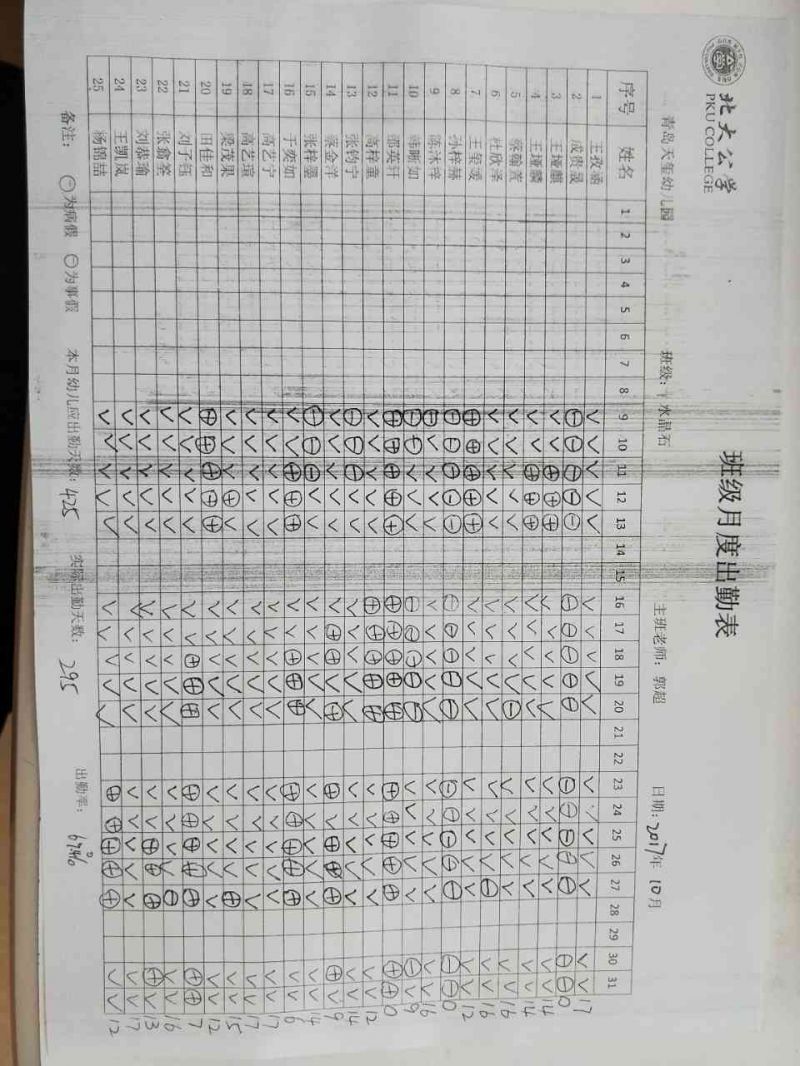 北大公学
PKU COLLEGE
班级月度出勤表
青岛天玺幼儿园 班级：水晶石 主班老师：郭超 日期：2017年 10月
序号 姓名 1 2 3 4 5 6 7 8 9 10 11 12 13 14 15 16 17 18 19 20 21 22 23 24 25 26 27 28 29 30 31
1 王孜涵 17
2 成贵晟 0
3 王垭麒 14
4 王垭麟 14
5 16
6 杜欣泽 16
7 王玺媛 12
8 孙梓赫 0
9 陈沐梓 16
10 韩晰如 9
11 邵英轩 0
12 高梓童 12
13 张钧宁 14
14 綦金洋 9
15 张梓墨 14
16 于奕如 6
17 高艺宁 17
18 高艺瑄 17
19 梁茂果 15
20 田佳和 12
21 刘子钰 7
22 张禽荃 16
23 刘恭瑜 13
24 王凯岚 17
25 杨锦喆 12
备注： ⊖为病假 ⊖为事假 本月幼儿应出勤天数：425 实际出勤天数：295 出勤率：